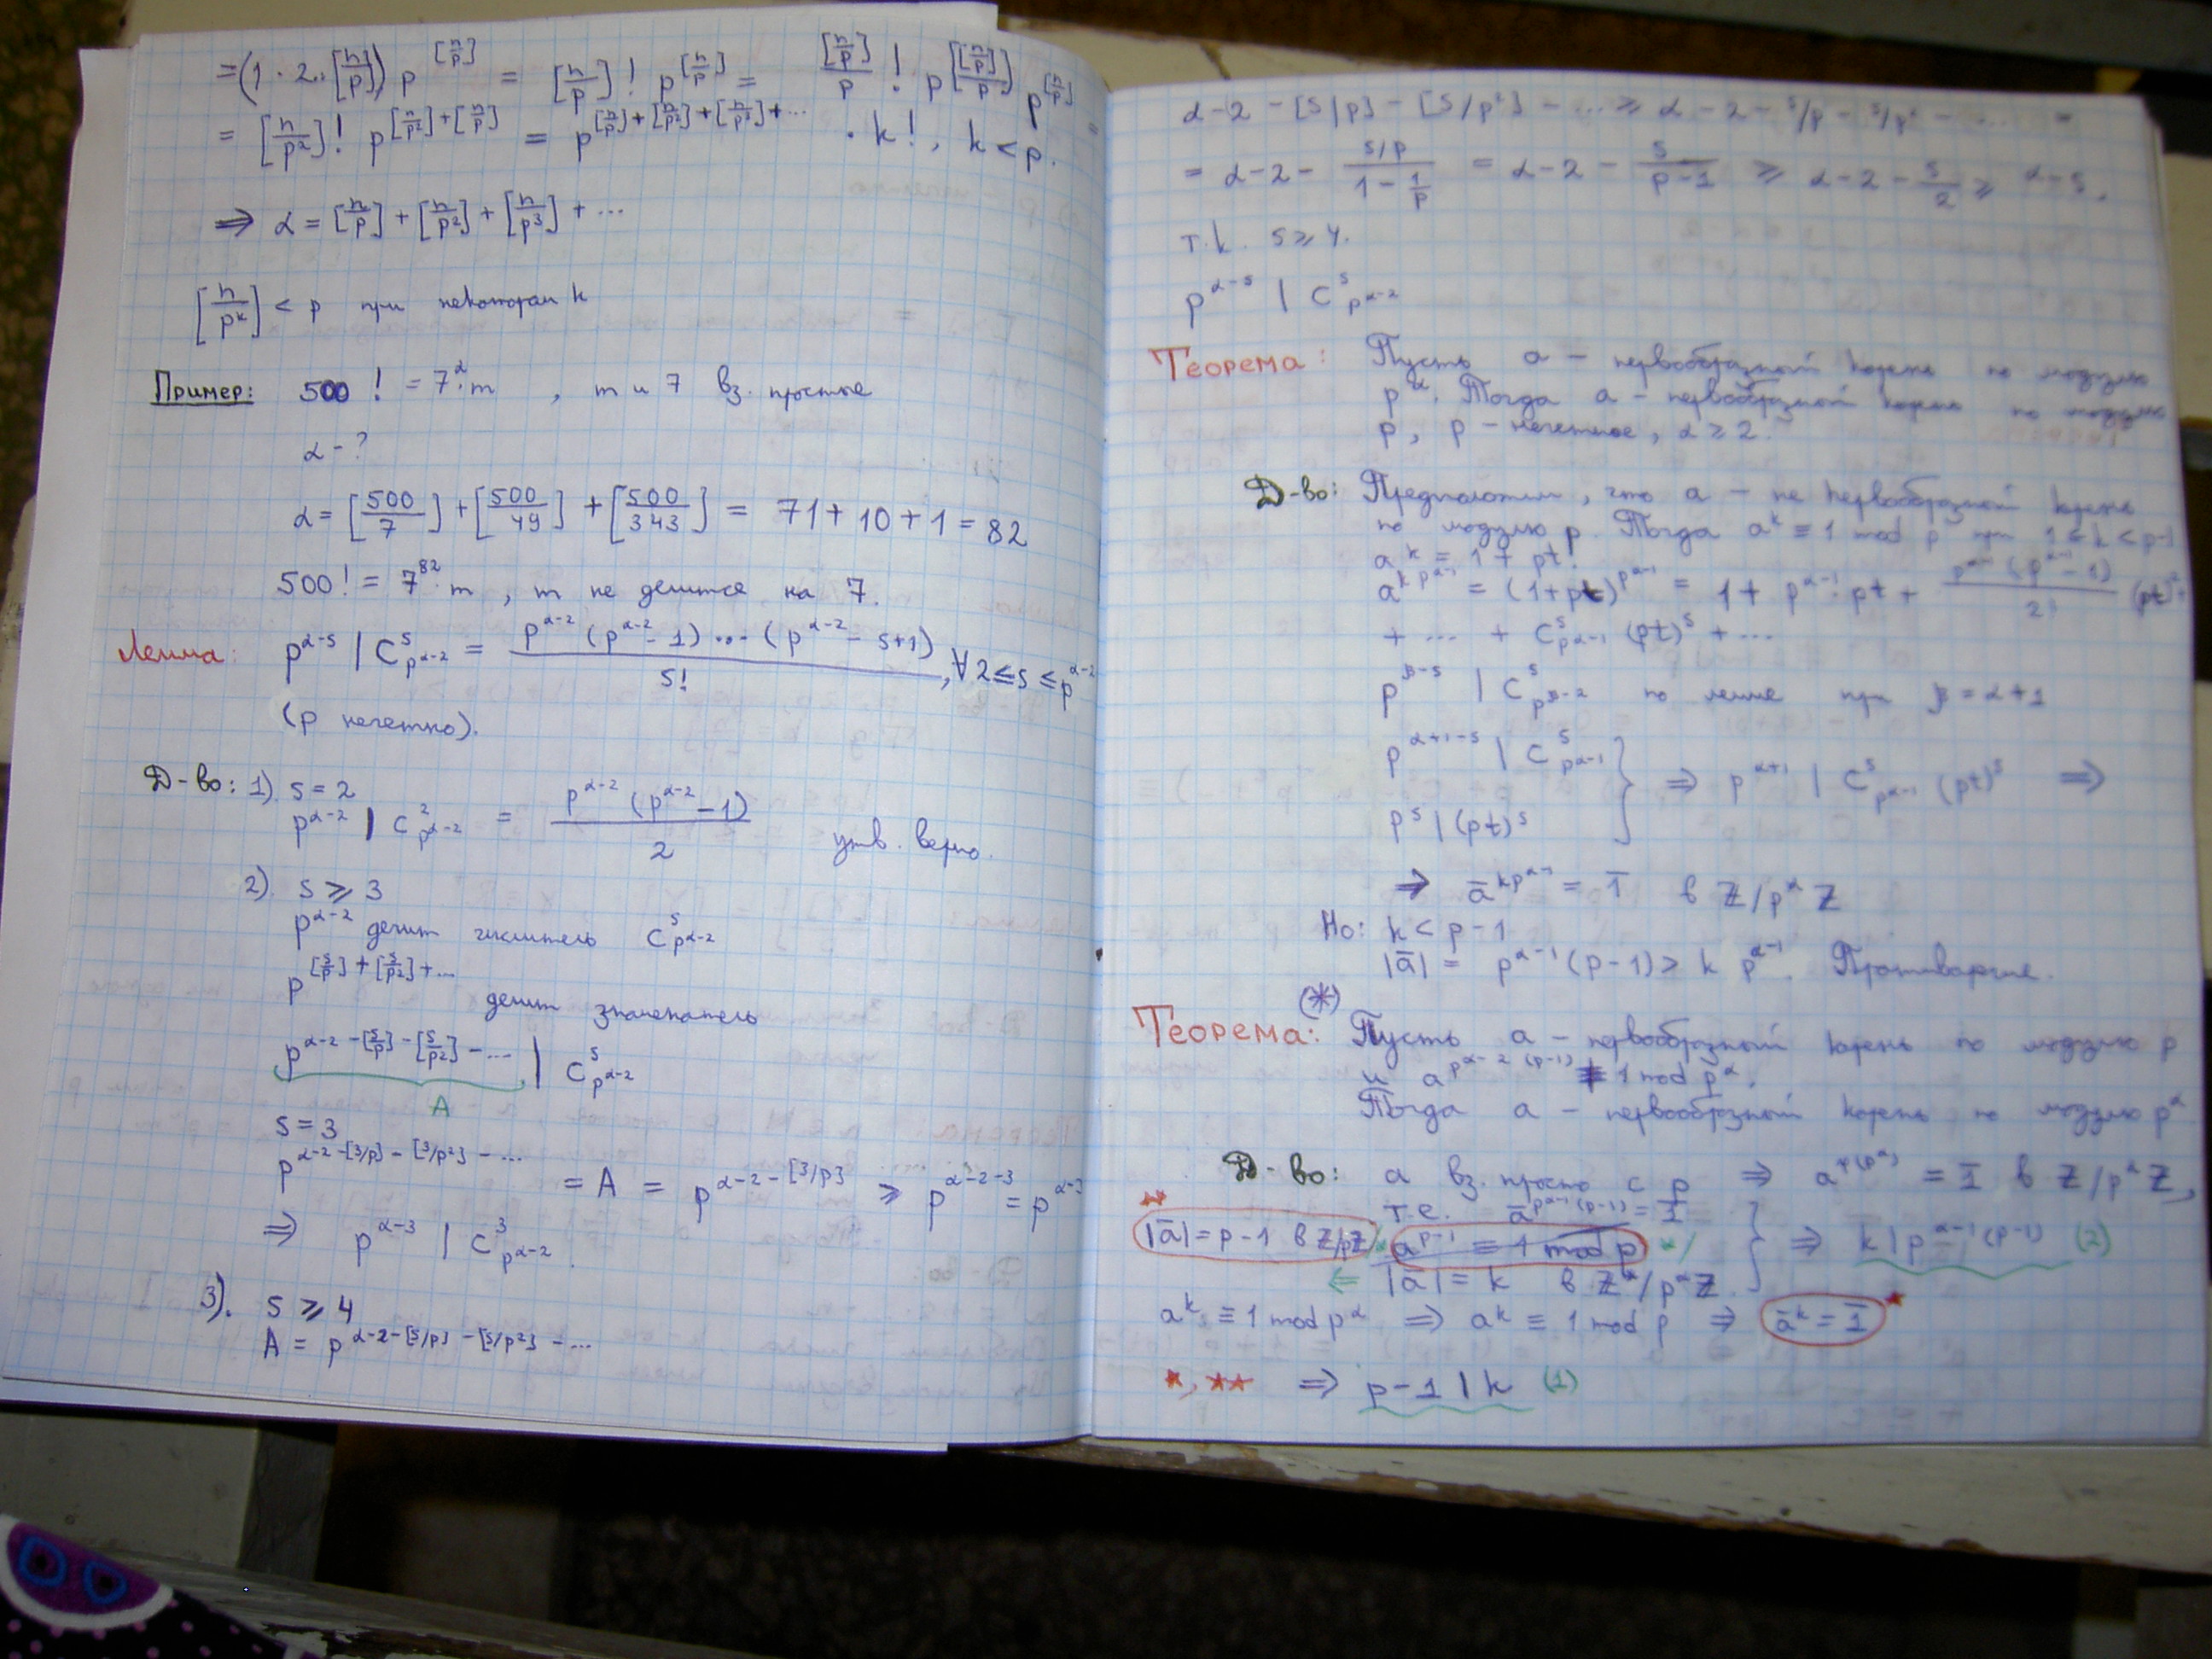 =(1 · 2.. [n/p]) p^{[n/p]} = [n/p]! p^{[n/p]} = [n/p]/p ! p^{[[n/p]/p]} p^{[n/p]} =
= [n/p²]! p^{[n/p²]+[n/p]} = p^{[n/p]+[n/p²]+[n/p³]+...} · k!, k < p.
⇒ α = [n/p] + [n/p²] + [n/p³] + ...
[n/p^k] < p при некотором k
Пример: 500! = 7^α · m , m и 7 вз. простые
α - ?
α = [500/7] + [500/49] + [500/343] = 71 + 10 + 1 = 82
500! = 7^{82} · m , m не делится на 7.
Лемма: p^{α-s} | C^s_{p^{α-2}} = p^{α-2}(p^{α-2} - 1) ... (p^{α-2} - s+1) / s! , ∀ 2 ≤ s ≤ p^{α-2}
(p нечетно).
Д-во: 1). s = 2
p^{α-2} | C²_{p^{α-2}} = p^{α-2}(p^{α-2} - 1) / 2 утв. верно.
2). s ⩾ 3
p^{α-2} делит числитель C^s_{p^{α-2}}
p^{[s/p]+[s/p²]+...} делит знаменатель
p^{α-2-[s/p]-[s/p²]-...} | C^s_{p^{α-2}}
A
s = 3
p^{α-2-[3/p]-[3/p²]-...} = A = p^{α-2-[3/p]} ⩾ p^{α-2-3} = p^{α-3}
⇒ p^{α-3} | C³_{p^{α-2}}.
3). s ⩾ 4
A = p^{α-2-[s/p]-[s/p²]-...}
α-2 - [s/p] - [s/p²] - ... ⩾ α-2 - s/p - s/p² - ... =
= α-2 - (s/p)/(1 - 1/p) = α-2 - s/(p-1) ⩾ α-2 - s/2 ⩾ α-s.
т.k. s ⩾ 4.
p^{α-s} | C^s_{p^{α-2}}
Теорема: Пусть a - первообразный корень по модулю
p^α. Тогда a - первообразный корень по модулю
p, p - нечетное, α ⩾ 2.
Д-во: Предположим, что a - не первообразный корень
по модулю p. Тогда a^k ≡ 1 mod p при 1 ≤ k < p-1
a^k = 1 + pt!
a^{kp^{α-1}} = (1+pt)^{p^{α-1}} = 1 + p^{α-1} · pt + p^{α-1}(p^{α-1}-1)/2! (pt)² +
+ ... + C^s_{p^{α-1}} (pt)^s + ...
p^{β-s} | C^s_{p^{β-2}} по лемме при β = α+1
p^{α+1-s} | C^s_{p^{α-1}} } ⇒ p^{α+1} | C^s_{p^{α-1}} (pt)^s ⇒
p^s | (pt)^s
⇒ ā^{kp^{α-1}} = 1̄ в Z/p^α Z
Но: k < p - 1
|ā| = p^{α-1}(p-1) > k p^{α-1}. Противоречие.
Теорема: (*) Пусть a - первообразный корень по модулю p
и a^{p^{α-2}(p-1)} ≢ 1 mod p^α.
Тогда a - первообразный корень по модулю p^α
Д-во: a вз. просто с p ⇒ a^{φ(p^α)} = 1̄ в Z/p^α Z,
т.е. ā^{p^{α-1}(p-1)} = 1̄
** |ā| = p-1 в Z/pZ a^{p-1} ≡ 1 mod p } ⇒ k | p^{α-1}(p-1) (2)
⇐ |ā| = k в Z^α/p^α Z.
a^k ≡ 1 mod p^α ⇒ a^k ≡ 1 mod p ⇒ ā^k = 1̄ *
*, ** ⇒ p-1 | k (1)